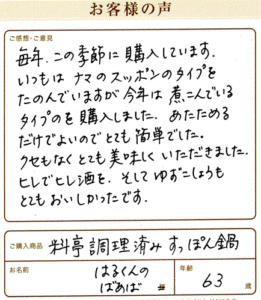 お客様の声
ご感想・ご意見
毎年、この季節に購入しています。
いつもは ナマのスッポンのタイプを
たのんでいますが今年は 煮こんでいる
タイプのを購入しました。あたためる
だけでよいのでとても簡単でした。
クセもなくとても美味しくいただきました。
ヒレでヒレ酒を、そしてゆずこしょうも
とてもおいしかったです。
ご購入商品 料亭調理済みすっぽん鍋
お名前 はるくんの
ばぁば 様
年齢 63 歳